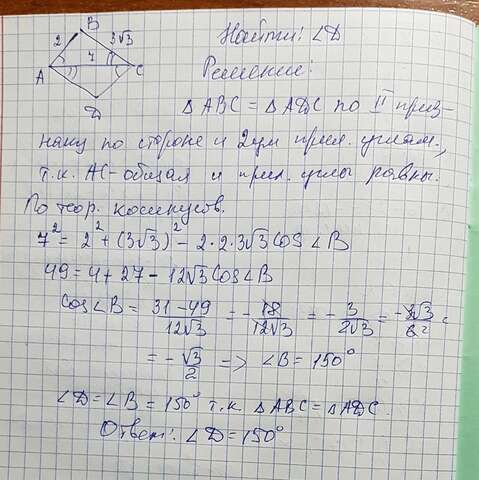 B
2
7
3√3
A
C
D
Найти: ∠D
Решение:
△ABC = △ADC по II приз-
наку по стороне и 2ум прил. углам,
т.к. AC - общая и прил. углы равны.
По теор. косинусов.
7² = 2² + (3√3)² - 2·2·3√3 cos∠B
49 = 4 + 27 - 12√3 cos∠B
cos∠B = (31 - 49)/(12√3) = -18/(12√3) = -3/(2√3) = -3√3/6 =
= -√3/2 => ∠B = 150°
∠D = ∠B = 150° т.к. △ABC = △ADC.
Ответ: ∠D = 150°